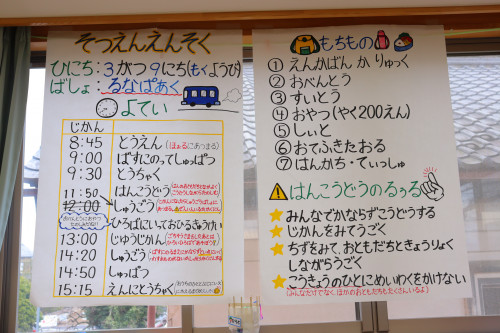 そつえんえんそく
ひにち:3がつ9にち(もくようび)
ばしょ:るなぱあく
よてい
じかん
8:45 とうえん(ほぉるにあつまる)
9:00 ばすにのってしゅっぱつ
9:30 とうちゃく
11:50 はんこうどう
12:00 しゅうごう
ひろばにいておひるきゅうけい
13:00 じゆうじかん
14:20 しゅうごう
14:50 しゅっぱつ
15:15 えんにとうちゃく
もちもの
① えんかばん か りゅっく
② おべんとう
③ すいとう
④ おやつ(やく200えん)
⑤ しぃと
⑥ おてふきたおる
⑦ はんかち・てぃっしゅ
はんこうどうのるぅる
みんなでかならずこうどうする
じかんをみてうごく
ちずをみて、おともだちときょうりょく
しながらうごく
こうきょうのひとにめいわくをかけない
(みんなだけでなく ほかのおともだちもたくさんいるよ)